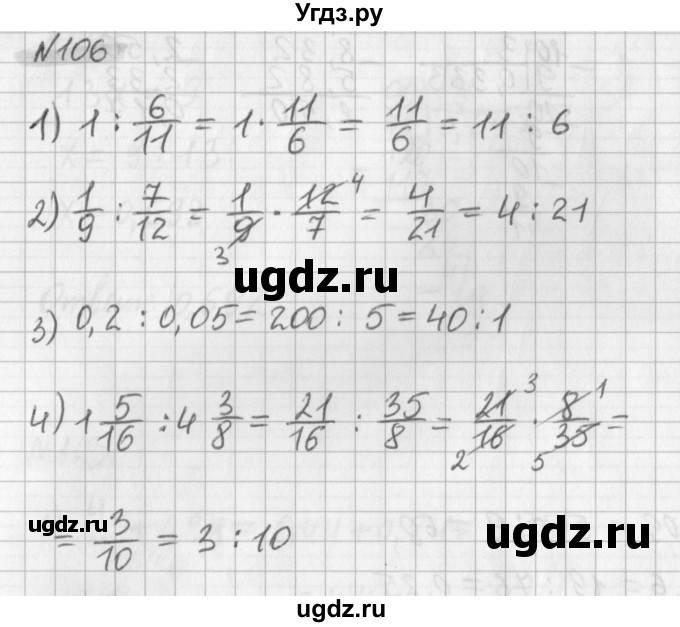 Угдз.ру
№106
1) 1 : 6/11 = 1 · 11/6 = 11/6 = 11 : 6
2) 1/9 : 7/12 = 1/9 · 12/7 = 4/21 = 4 : 21
3 4
ugdz.ru
3) 0,2 : 0,05 = 200 : 5 = 40 : 1
4) 1 5/16 : 4 3/8 = 21/16 : 35/8 = 21/16 · 8/35 =
3 1 2 5
ugdz.ru
ugdz.ru
= 3/10 = 3 : 10
ugdz.ru